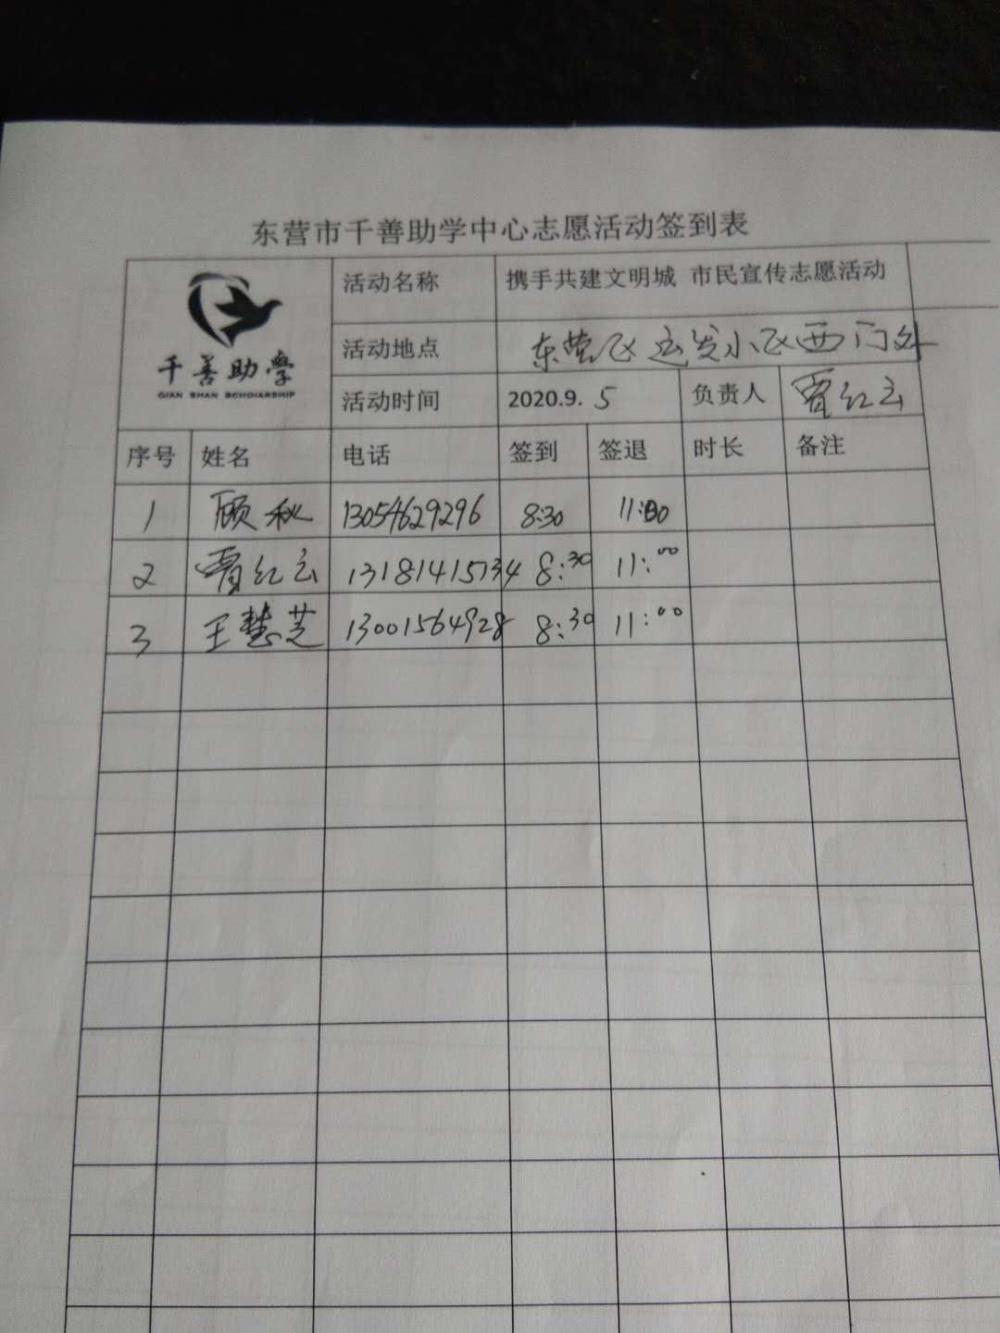 东营市千善助学中心志愿活动签到表
千善助学
QIAN SHAN SCHOLARSHIP
活动名称 携手共建文明城 市民宣传志愿活动
活动地点 东营区运发小区西门外
活动时间 2020.9.5 负责人 贾红云
序号 姓名 电话 签到 签退 时长 备注
1 顾秋 13054629296 8:30 11:00
2 贾红云 13181415734 8:30 11:00
3 王慧芝 13001564928 8:30 11:00